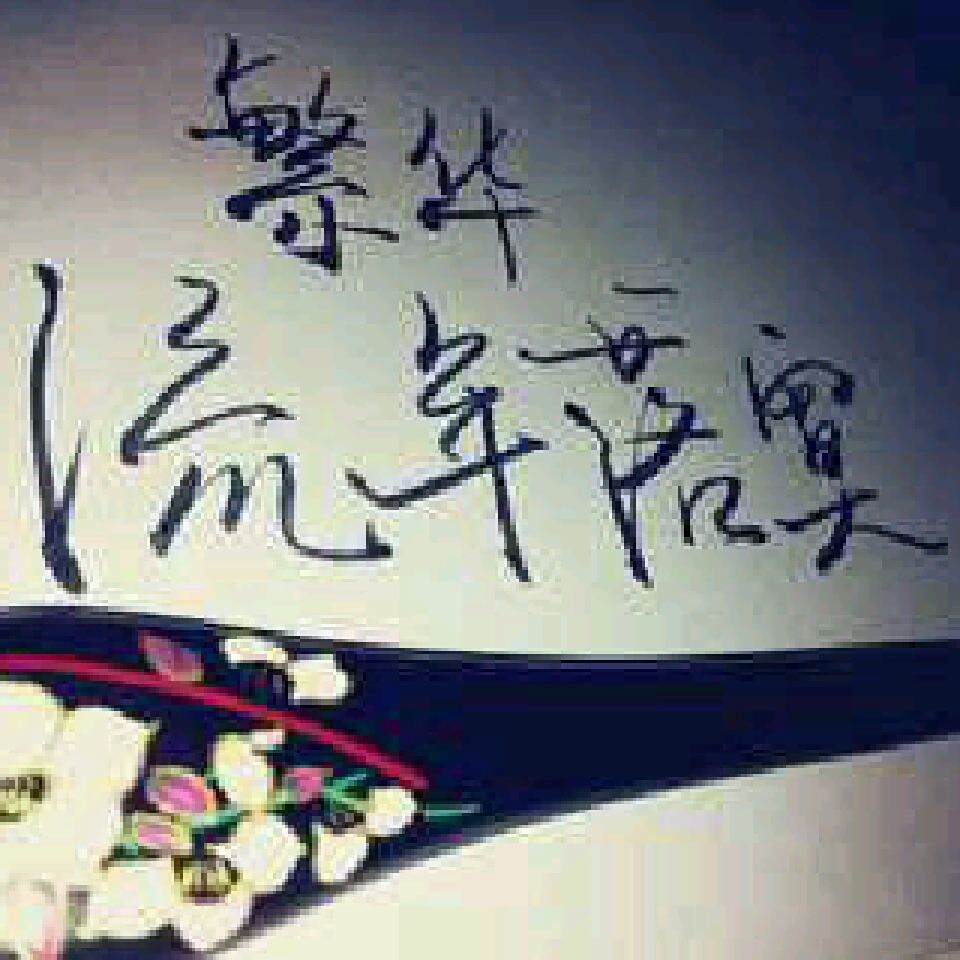 繁华
流年落寞